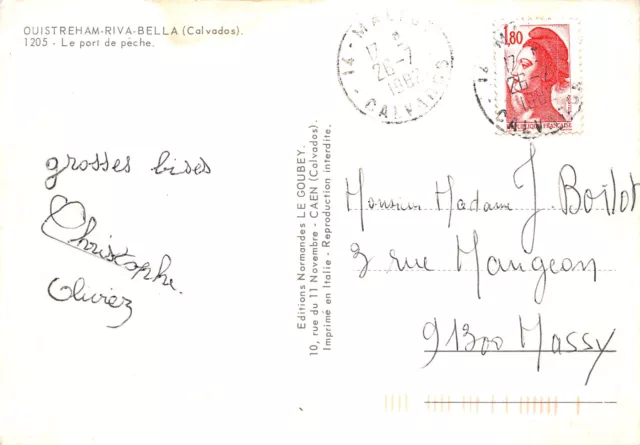 OUISTREHAM-RIVA-BELLA (Calvados).
1205 - Le port de pêche.
grosses bises
Christophe.
Olivier
Editions Normandes LE GOUBEY.
10, rue du 11 Novembre - CAEN (Calvados).
Imprimé en Italie - Reproduction interdite.
14 -
17
26-7
1982
CALVADOS
1,80
REPUBLIQUE FRANÇAISE
Monsieur Madame J. Boillot
3 rue Mangeon
91300 Massy